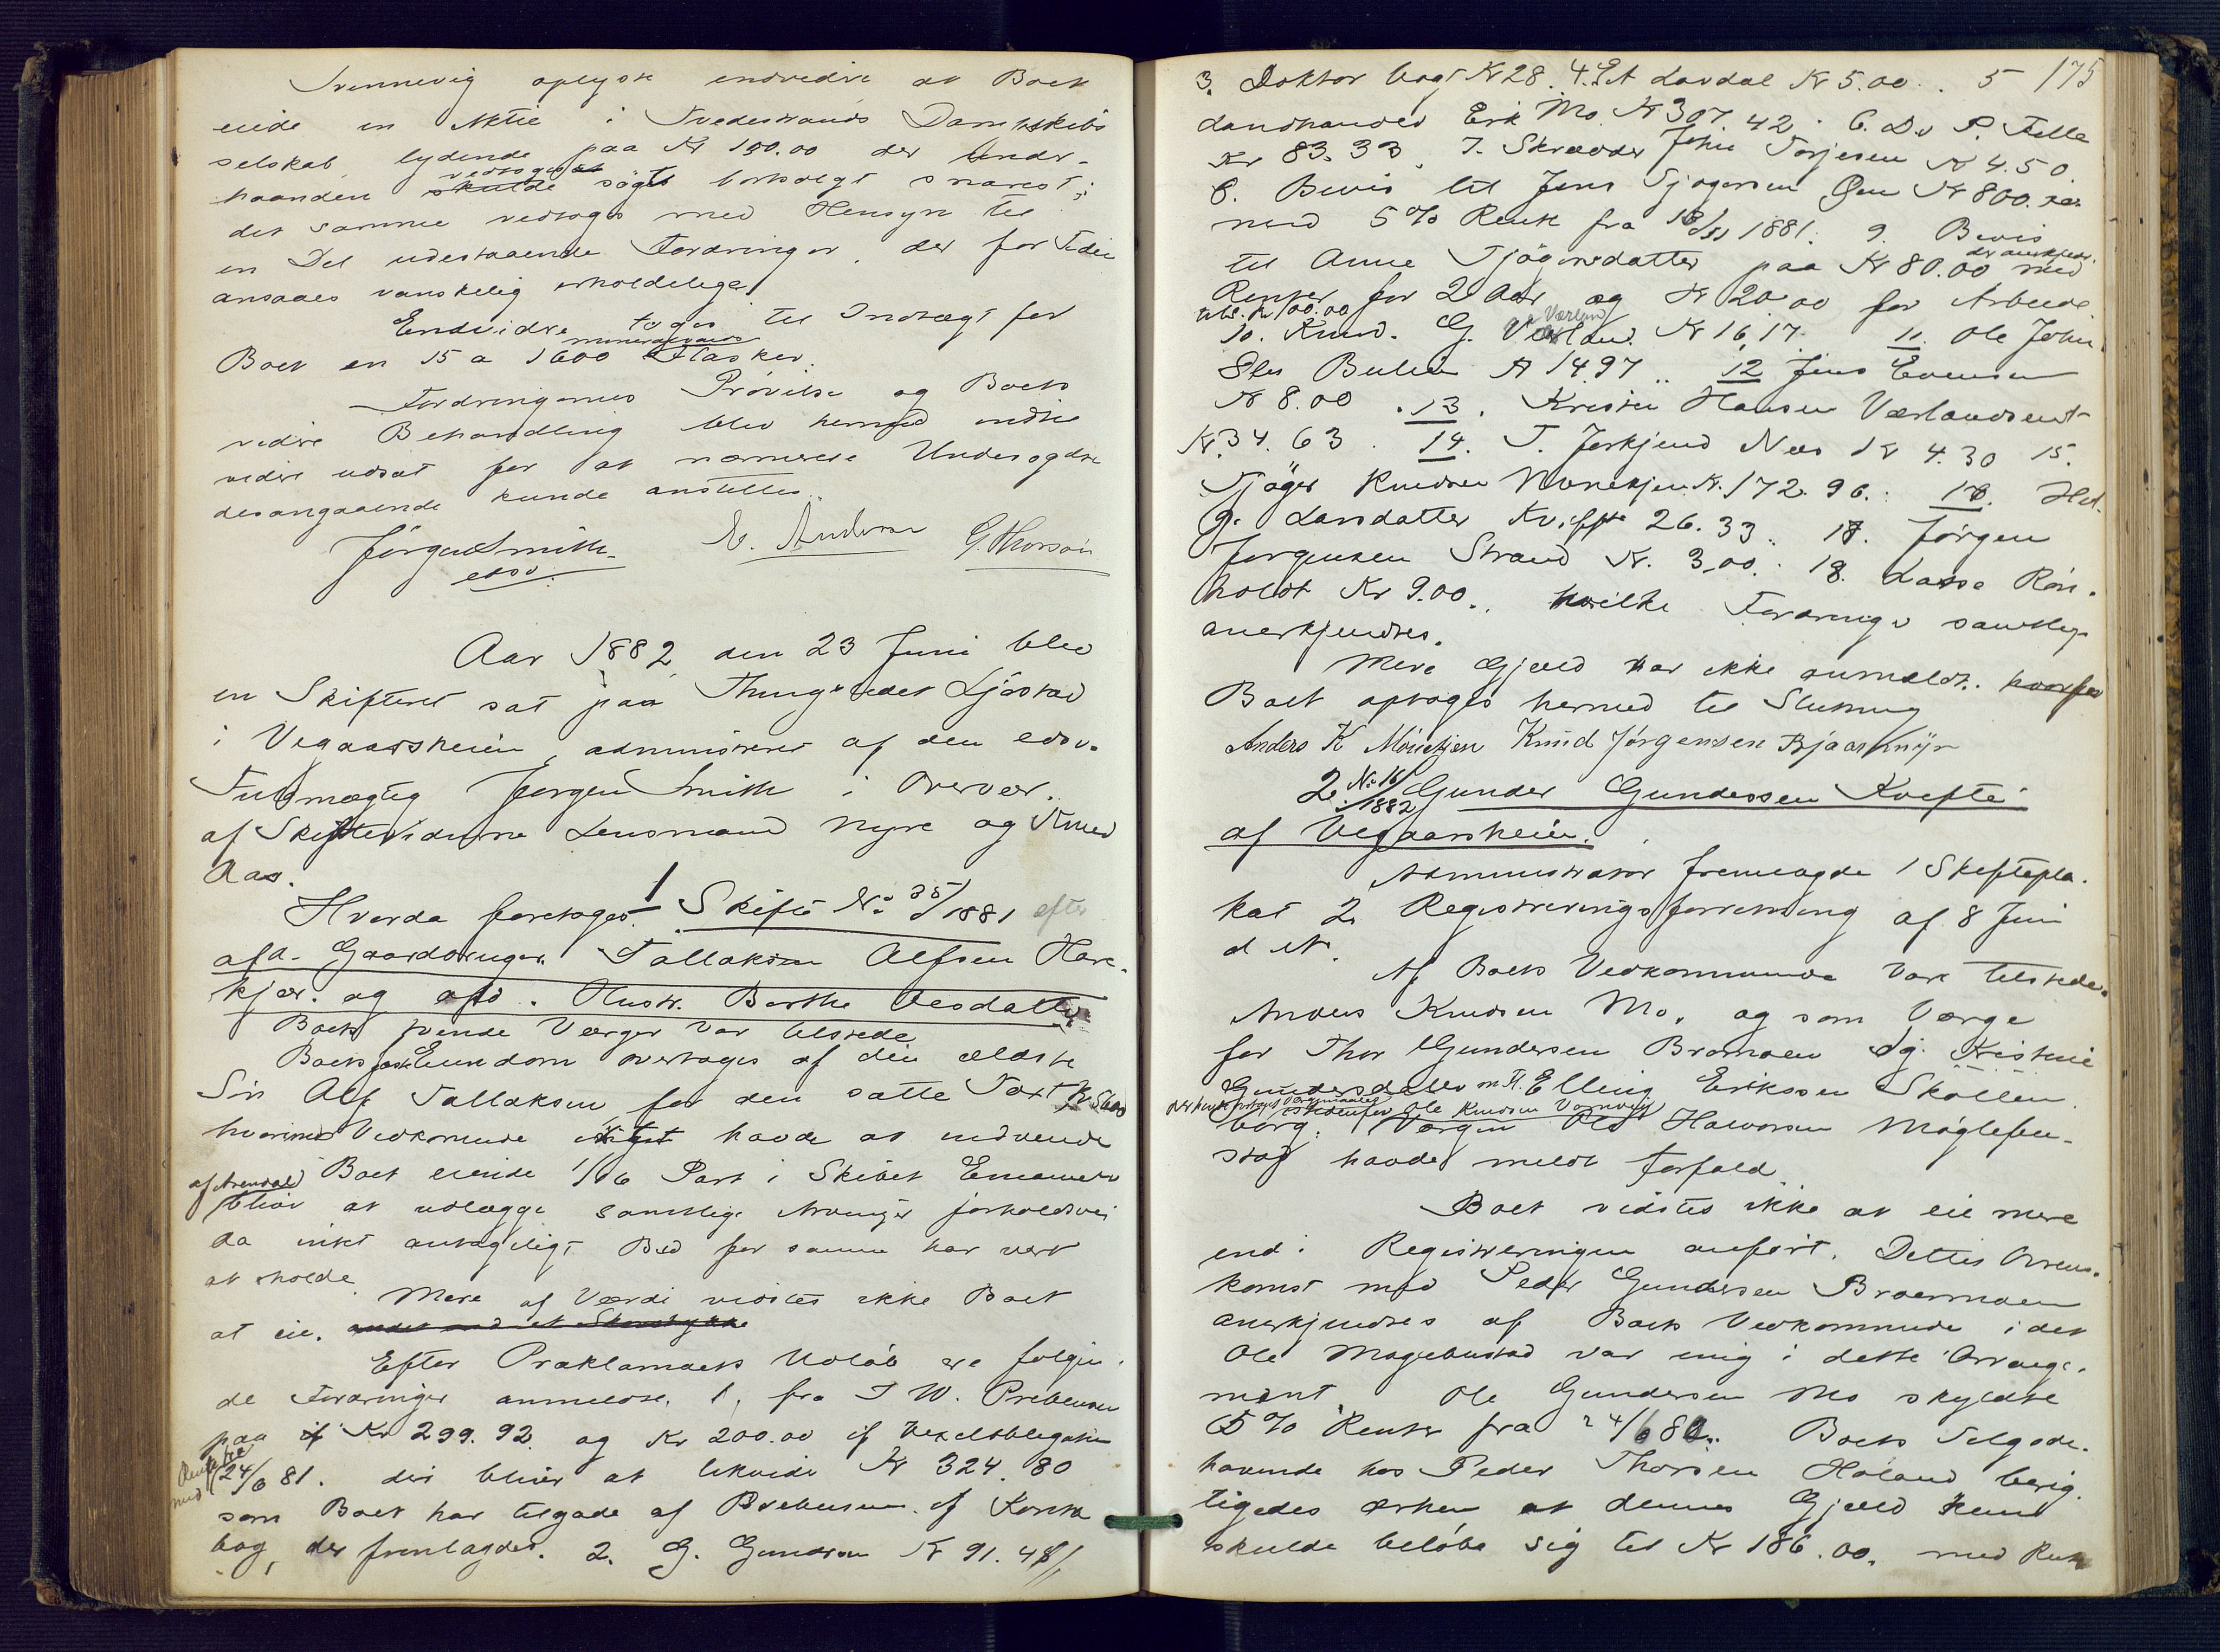 Svennevig oplyste endvidre at Boet
eiede en Aktie i Tvedestrands Dampskibs
selskab lydende paa Kr 100.00 der under-
haanden skulde vedtoges at søges bortsolgt snarest;
det samme vedtoges med Hensyn til
en Del udestaaende Fordringer, der for Tiden
ansaaes vanskelig erholdelige
Endvidre toges til Indtægt for
Boet en 15 a 1600 mineralvands Flasker.
Fordringernes Prøvelse og Boets
videre Behandling blev hermed indtil
videre udsat for at nærmere Undersøgelse
desangaaende kunde anstilles.
Jørgen Smith E. Anderson G. Thorsen
edsv.
Aar 1882 den 23 Juni blev
en Skifteret sat paa Thingstedet Ljøstad
i Vegaarsheien, administreret af den edsv.
Fuldmægtig Jørgen Smith i Overvær
af Skiftevidnerne Lensmand Nyre og Knud
Aas.
Hvorda foretoges 1 Skifte No 35/1881 efter
afd. Gaardbruger Tallaksen Alfsen Have-
kjær. og afd. Hustr. Berthe Oesdatter
Boets Værger var tilstede
Boets faste Eiendom overtages af den ældste
Søn Alf Tallaksen for den satte Taxt
hvorimod Vedkommende intet havde at indvende
af Arendal Boet eiende 1/16 Part i Skibet Emanuel
bliver at udlægge samtlige Arvinger forholdsvis
da intet antageligt Bud for samme har vært
at erholde.
Mere af Værdi vidstes ikke Boet
at eie. andet end et
Efter Proklamaets Udløb ere følgen-
de Fordringer anmeldte. 1, fra J W. Prebensen
paa Kr 299.92 og Kr 200.00 if Vexelobligation
med Rente fra 24/6 81. der bliver at likvide Kr 324.80
som Boet har tilgode af Prebensen if Kontra
bog, der fremlagdes. 2. G. Gundersen Kr 91.48
175
3. Doktor Vogt Kr 28.49 4. A Lavdal Kr 5.00. 5
Landhandler Erik Mo Kr 307.42. 6. Do P. Felle
Kr 83.33. 7. Skrædder John Torjesen Kr 4.50.
8. Bevis til Jens Tjøgersen Kr 800.
med 5% Rente fra 1881. 9. Bevis
til Anne Tjøgersdatter paa Kr 80.00 med
Renter for 2 Aar og Kr 20.00 for Arbeide
tils. Kr 100.00 der anerkjend.
10. Knud. G. Værland Kr 16,17. 11. Ole John
Kr 14.97. 12 Jens Evensen
Kr 8.00. 13. Kristen Hansen
Kr. 34.63. 14. T. Nes Kr 4.30 15.
Tjøger Knudsen Kr. 172.96. 16. Hel-
g. Larsdatter 26.33. 17. Jørgen
Jørgensen Strand Kr. 3.00. 18. Lasse Røn-
holdt Kr 9.00.. hvilke Fordringer samtlige
anerkjendtes.
Mere Gjæld var ikke anmeldt. hvorfor
Boet optoges hermed til Slutning
Anders K Mönekjen Knud Jørgensen
2. No 16/1882 Gunder Gundersen Kvefte
af Vegaarsheien.
Administrator fremlagde 1 Skiftepla-
kat 2 Registreringsforretning af 8 Juni
d A.
Af Boets Vedkommende var tilstede
Anders Knudsen Mo, og som Værge
for Thor Gundersen Bromoen og Kristine
Gundersdatter m. Fl. Elling Eriksen Skollen
borg. Værgen Ole Halvorsen
stad havde meldt Forfald
Boet vidstes ikke at eie mere
end i Registreringen anført. Dettes Overens-
komst med Peder Gundersen Bromoen
anerkjendtes af Boets Vedkommende idet
Ole var enig i dette Arrange-
ment. Ole Gundersen Mo skyldte
5% Renter fra 24/6 80.. Boets Tilgode-
havende hos Peder Thorsen Haland berig-
tigedes derhen at dennes Gjæld kun
skulde beløbe sig til Kr 186.00. med Rente